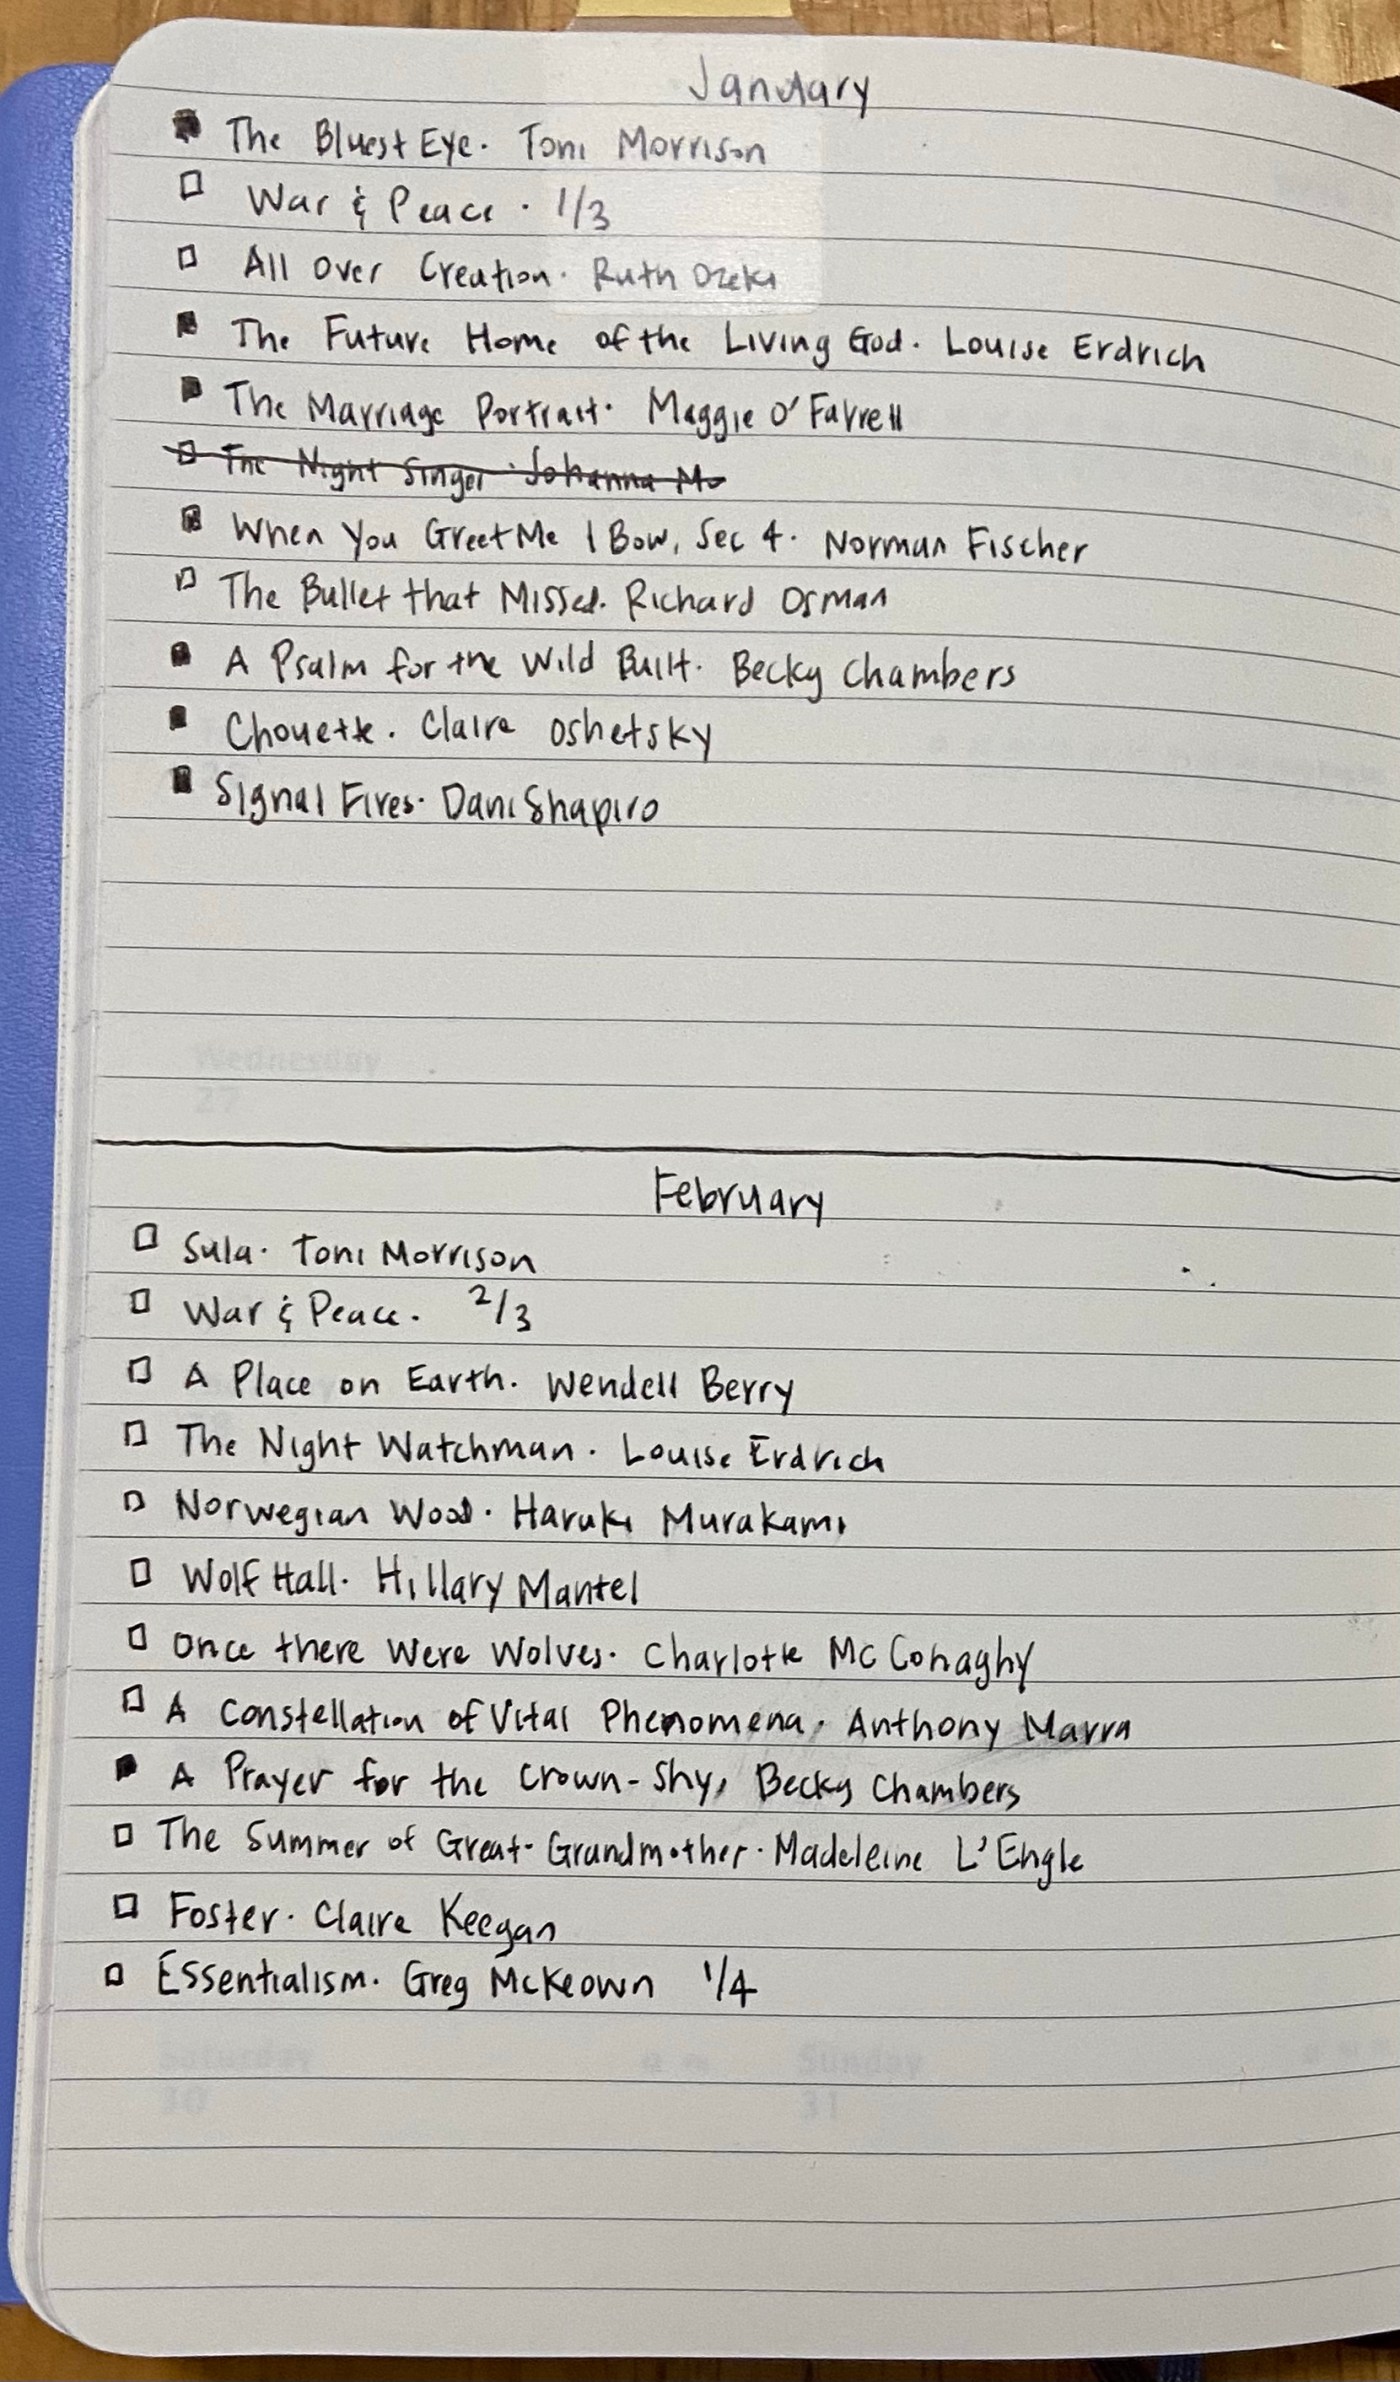 January
The Bluest Eye. Toni Morrison
War & Peace. 1/3
All Over Creation. Ruth Ozeki
The Future Home of the Living God. Louise Erdrich
The Marriage Portrait. Maggie O'Farrell
The Night Singer. Johanna Mo
When You Greet Me I Bow, Sec 4. Norman Fischer
The Bullet that Missed. Richard Osman
A Psalm for the Wild Built. Becky Chambers
Chouette. Claire Oshetsky
Signal Fires. Dani Shapiro
Wednesday
27
February
Sula. Toni Morrison
War & Peace. 2/3
A Place on Earth. Wendell Berry
The Night Watchman. Louise Erdrich
Norwegian Wood. Haruki Murakami
Wolf Hall. Hillary Mantel
Once there Were Wolves. Charlotte McConaghy
A Constellation of Vital Phenomena. Anthony Marra
A Prayer for the Crown-Shy, Becky Chambers
The Summer of Great-Grandmother. Madeleine L'Engle
Foster. Claire Keegan
Essentialism. Greg McKeown 1/4
Saturday Sunday
30 31